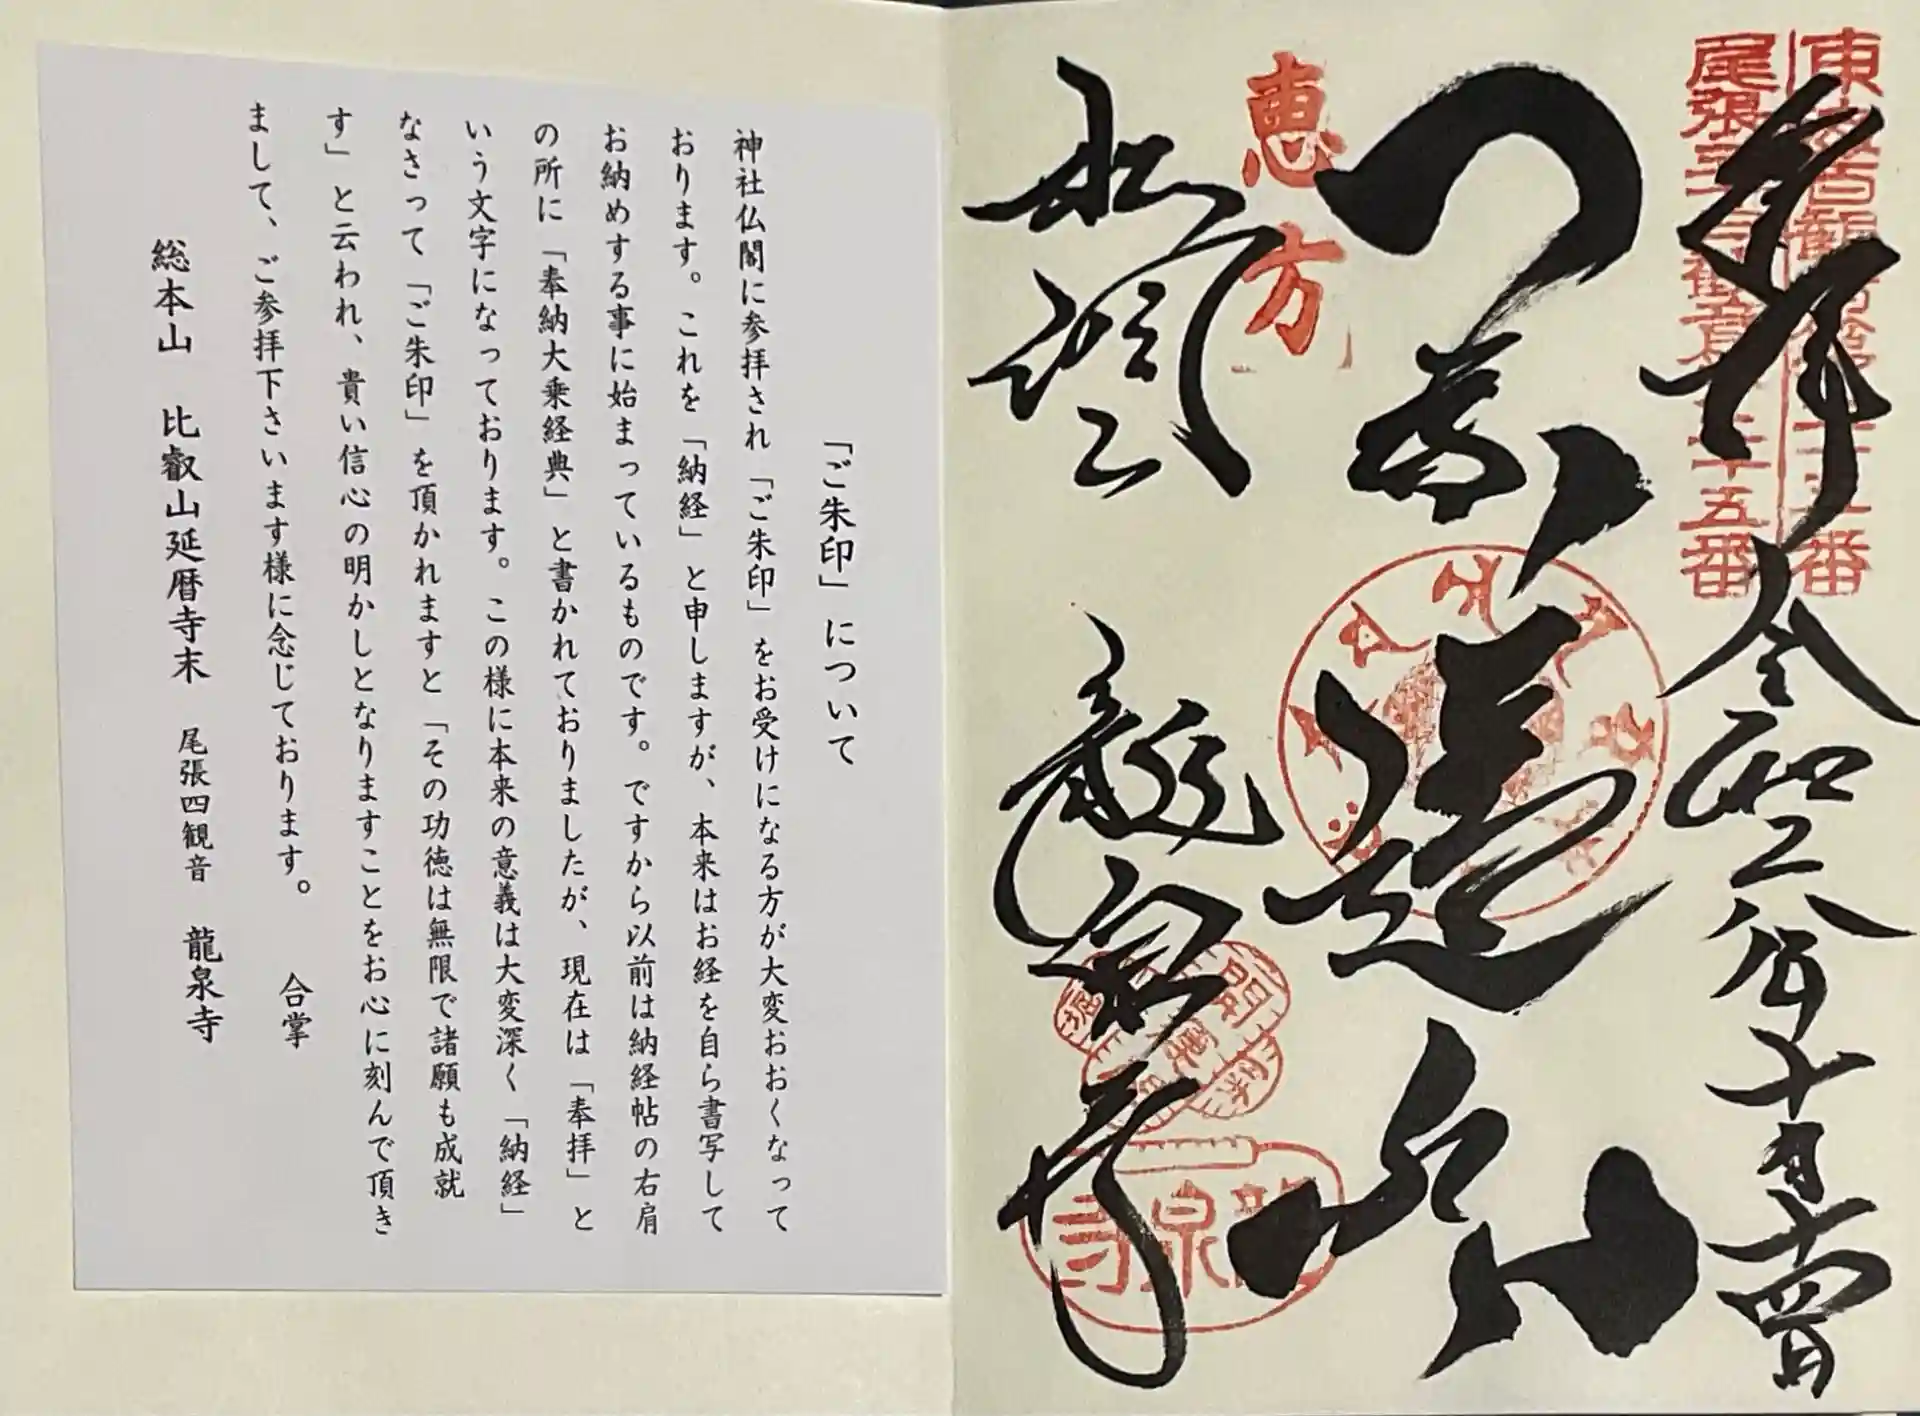 奉拝
令和六年十月十四日
東海百観音
尾張三十三観音第二十五番
恵方
松洞山
龍泉寺
龍泉寺
「ご朱印」について
神社仏閣に参拝され「ご朱印」をお受けになる方が大変おおくなって
おります。これを「納経」と申しますが、本来はお経を自ら書写して
お納めする事に始まっているものです。ですから以前は納経帖の右肩
の所に「奉納大乗経典」と書かれておりましたが、現在は「奉拝」と
いう文字になっております。この様に本来の意義は大変深く「納経」
なさって「ご朱印」を頂かれますと「その功徳は無限で諸願も成就
す」と云われ、貴い信心の明かしとなりますことをお心に刻んで頂き
まして、ご参拝下さいます様に念じております。
合掌
総本山 比叡山延暦寺末 尾張四観音 龍泉寺